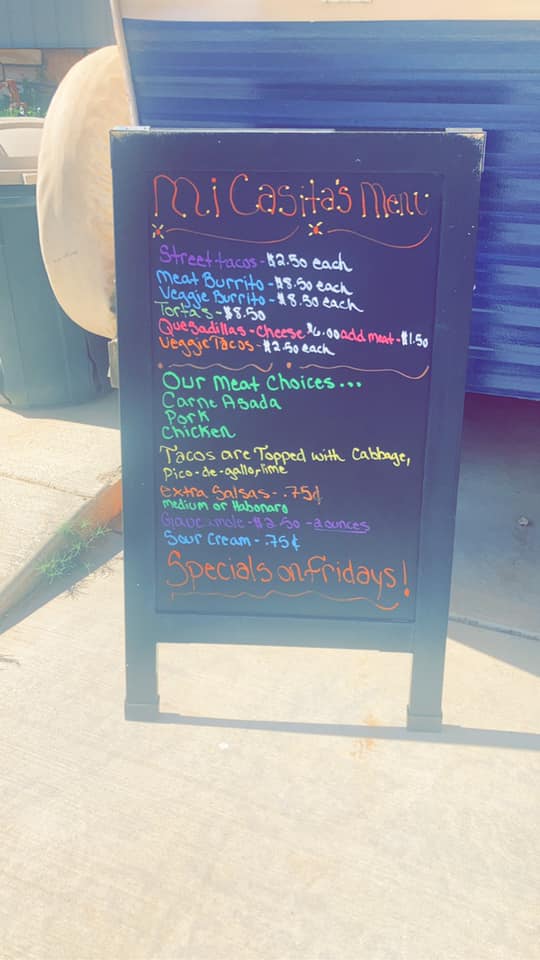 Mi Casita's Menu
Street tacos - $2.50 each
Meat Burrito - $8.50 each
Veggie Burrito - $8.50 each
Torta's - $8.50
Quesadillas - cheese $6.00 add meat - $1.50
Veggie Tacos - $2.50 each
Our Meat Choices...
Carne Asada
Pork
Chicken
Tacos are Topped with Cabbage,
Pico-de-gallo, lime
extra Salsas - .75¢
medium or Habonaro
- $2.50 - 2 ounces
Sour Cream - .75¢
Specials on Fridays!